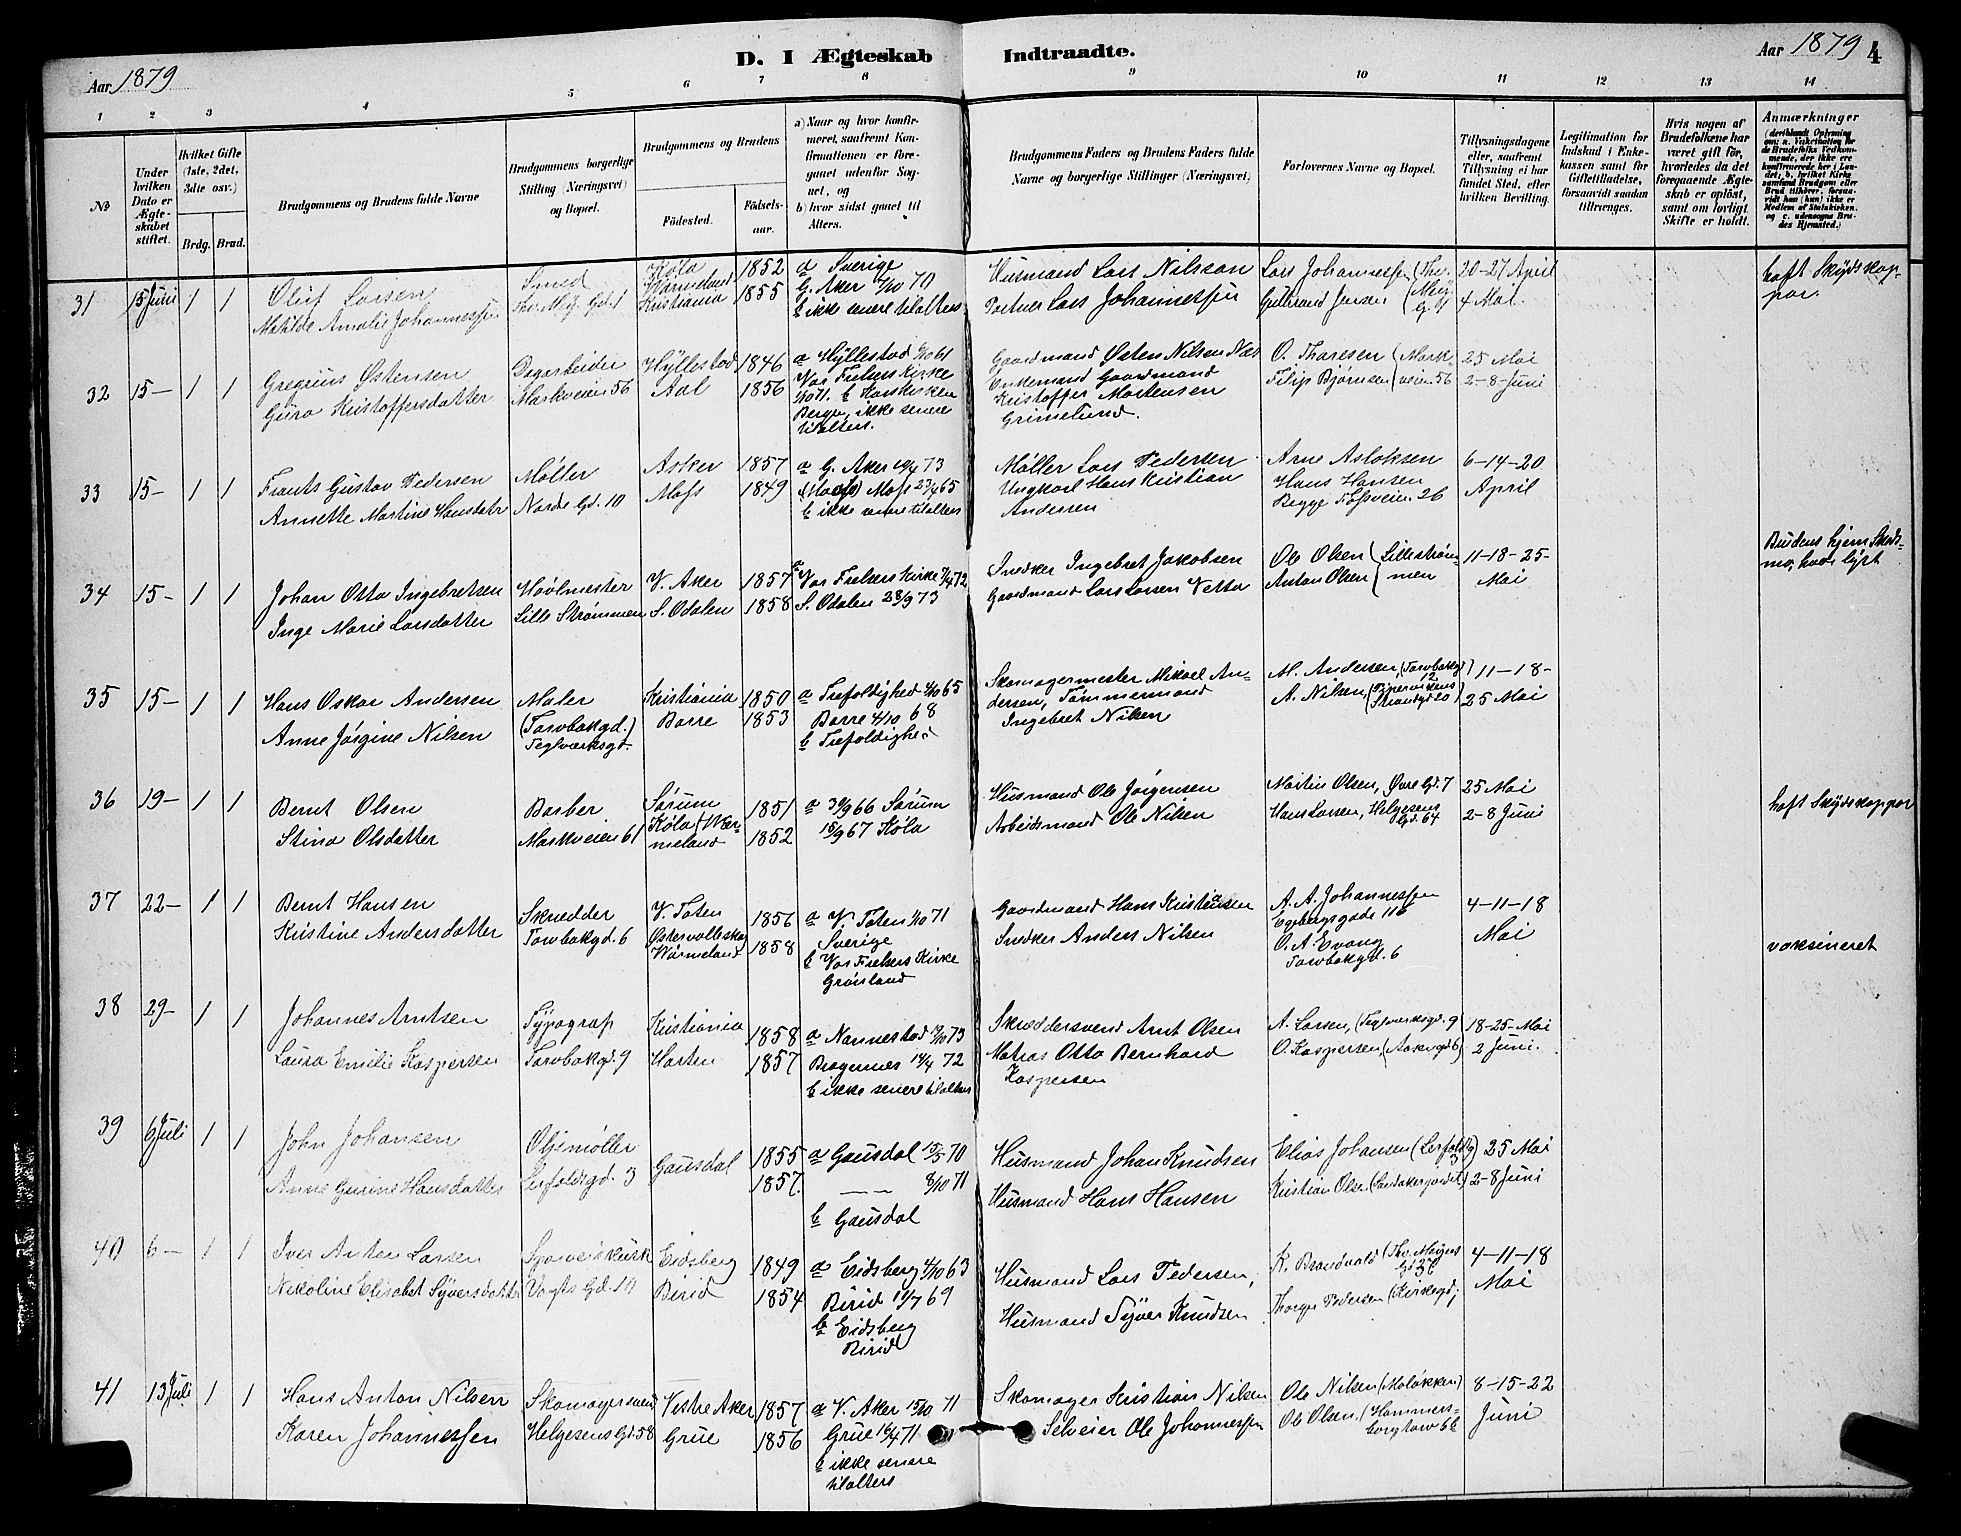 Aar 1879
D. I Ægteskab Indtraadte.
Aar 1879
4
1 2 3 4 5 6 7 8 9 10 11 12 13 14
No
Under hvilken Dato er Ægteskabet stiftet.
Hvilket Gifte (1ste, 2det, 3die osv.)
Brdg. Brud.
Brudgommens og Brudens fulde Navne
Brudgommens borgerlige Stilling (Næringsvei) og Bopæl.
Brudgommens og Brudens
Fødested.
Fødselsaar.
a) Naar og hvor konfirmeret, saafremt Konfirmationen er foregaaet udenfor Sognet, og
b) hvor sidst gaaet til Alters.
Brudgommens Faders og Brudens Faders fulde Navne og borgerlige Stillinger (Næringsvei)
Forlovernes Navne og Bopæl.
Tillysningsdagene eller, saafremt Tillysning ei har fundet Sted, efter hvilken Bevilling.
Legitimation for Indskud i Enkekassen samt for Giftetilladelse, forsaavidt saadan tiltrænges.
Hvis nogen af Brudefolkene har været gift før, hvorledes da det foregaaende Ægteskab er opløst, samt om lovligt Skifte er holdt.
Anmærkninger
(deriblandt Oplysning om: a. Vaksination for de Brudefolks Vedkommende, der ikke ere konfirmerede her i Landet; b. hvilket Kirkesamfund Brudgom eller Brud tilhører, forsaavidt han (hun) ikke er Medlem af Statskirken, og c. udensogns Brudes Hjemsted.)
31 15 Juni 1 1
Oluf Larsen
Matilde Amalie Johannessen
Smed
Thv. Meÿ. Gd. 1
Køla Wærmeland 1852
Kristiania 1855
a Sverige
G. Aker 2/10 70
b ikke senere tilalters
Husmand Lars Nilsson
Portner Lars Johannessen
Lars Johannessen (Thv.
Gulbrand Jensen (Meÿ. G. 1
20-27 April
4 Mai.
haft Skÿdskoppar.
32 15— 1 1
Gregius Østensen
Guro Kristoffersdatter
Dagarbeider
Markveien 56
Hÿllestad 1846
Aal 1856
a Hÿllestad 6/10 61
Vor Frelsers Kirke
1/10 71. b Korskirken
Bergen, ikke senere
tilalters.
Gaardmand Østen Nilsen Næs
Enkemand Gaardmand
Kristoffer Mortensen
Grimelund.
O. Thoresen (Mark-
Filip Bjørnsen (veien 56
25 Mai
2-8-Juni
33 15— 1 1
Frants Gustav Pedersen
Annette Martine Hansdatr
Møller
Nordre Gd. 10
Asker 1857
Moss 1849
a G. Aker 19/4 73
Moss 23/4 65
b ikke senere tilalters
Møller Lars Pedersen
Ungkarl Hans Kristian
Andersen
Arne Aslaksen
Hans Hansen
Begge Fossveien 26
6-14-20
April
34 15— 1 1
Johan Otto Ingebretsen
Inge Marie Larsdatter
Høvlmester
Lille Strømmen
V. Aker 1857
S. Odalen 1858
Vor Frelsers Kirke 7/4 72
S. Odalen 28/9 73
Snedker Ingebret Jakobsen
Gaardmand Lars Larsen Vetta
Ole Olsen (Lillestrøm-
Anton Olsen (men
11-18-25-
Mai
Budens hjem Skeds-
mo, hvor lÿst
35 15— 1 1
Hans Oskar Andersen
Anne Jørgine Nilsen
Maler
(Torvbakgd.)
Teglværksgd.
Kristiania 1850
Borre 1853
a Trefoldighed 1/10 65
Borre 4/10 68
b Trefoldighed
Skomagermester Mikael An-
dersen, Tømmermand
Ingebret Nilsen
M. Andersen, (Torvbakgd 12
A. Nilsen, (Pipervikens Strandgd 20)
11-18-
25 Mai
36 19— 1 1
Bernt Olsen
Stina Olsdatter
Barber
Markveien 61
Sørum 1851
Køla (Wær-
meland 1852
a 30/9 66 Sørum
15/9 67 Køla
Husmand Ole Jørgensen
Arbeidsmand Ole Nilsen
Martin Olsen, Øvre Gd. 7
Hans Larsen, Helgesens Gd. 64
25 Mai
2-8 Juni
haft Skÿdskoppar
37 22— 1 1
Bernt Hansen
Kristine Andersdatter
Skrædder
Torvbakgd. 6
V. Toten 1856
Østervallskog
Wærmeland 1858
a V. Toten 1/10 71
Sverige
b Vor Frelsers Kirke
Grønland
Gaardmand Hans Kristiansen
Snedker Anders Nilsen
A. A. Johannessen
Egebergsgade 11b
O. A. Evang
Torvbakgd. 6
4-11-18
Mai
vaksineret
38 29— 1 1
Johannes Arntsen
Laura Emilie Kaspersen
Tÿpograf
Torvbakgd. 9
Kristiania 1858
Horten 1857
a Nannestad 12/10 73
Bragernes 14/4 72
b ikke senere tilalters
Skræddersvend Arnt Olsen
Matros Otto Bernhard
Kaspersen
A. Larsen, (Teglverksgd. 9
O. Kaspersen, (Aakergd 6)
18-25-Mai
2 Juni.
39 6 Juli 1 1
John Johansen
Anne Gurine Hansdatter
Oljemøller
Lerfoldsgd. 3
Gausdal 1855
1857.
a Gausdal 15/5 70
— — 8/10 71
b Gausdal
Husmand Johan Knudsen
Husmand Hans Hansen
Elias Johansen (Lerfoldsg 3)
Kristian Olsen (Sandakerjordet)
25 Mai
2-8 Juni
40 6— 1 1
Iver Anton Larsen
Nikoline Elisabet Sÿversdatter
Vogts Gd. 10
Eidsberg 1849
Birid 1854
a Eidsberg 4/10 63
Birid 11/7 69
b Eidsberg
Birid
Husmand Lars Pedersen,
Husmand Sÿver Knudsen
K. Brandvold (Thv. Meÿers Gd 36
Thorger Pedersen (Kirkegd;
4-11-18
Mai
41 13 Juli 1 1
Hans Anton Nilsen
Karen Johannessen
Skomagersvend
Helgesens Gd. 58
Vestre Aker 1857
Grue 1856
a V. Aker 15/10 71
Grue 16/4 71
b ikke senere
tilalters
Skomager Kristian Nilsen
Selveier Ole Johannessen
Ole Nilsen (Moløkken)
Ole Olsen (Hammers-
borgtorv 6b
8-15-22
Juni